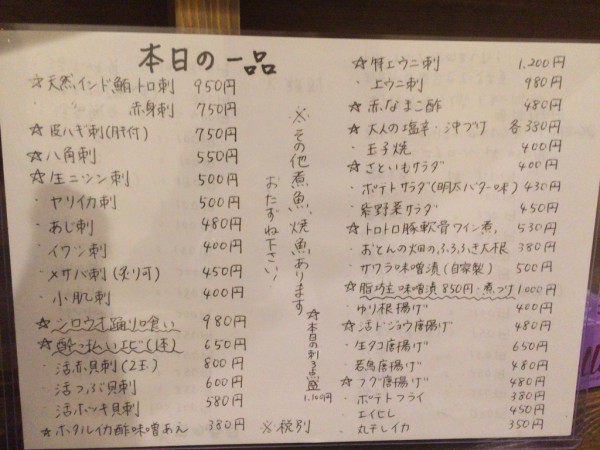 本日の一品
☆天然インド鮪トロ刺 950円
・ 〃 赤身刺 750円
☆皮ハギ刺(肝付) 750円
☆八角刺 550円
☆生ニシン刺 500円
・ヤリイカ刺 500円
・あじ刺 480円
・イワシ刺 400円
・〆サバ刺(炙り可) 450円
・小肌刺 400円
☆シロウオ踊り喰い 980円
☆酔っ払いエビ 650円
・活赤貝刺(2玉) 800円
・活つぶ貝刺 600円
・活ホッキ貝刺 580円
★ホタルイカ酢味噌あえ 380円
※その他煮魚、焼魚あります
おたずね下さい!
☆本日の刺し盛
1,100円
※税別
☆特上ウニ刺 1,200円
・上ウニ刺 980円
☆赤なまこ酢 480円
☆大人の塩辛・沖づけ 各380円
・玉子焼 400円
☆さといもサラダ 400円
・ポテトサラダ(明太バター味) 430円
・紫野菜サラダ 450円
☆トロトロ豚軟骨ワイン煮 530円
・おとんの畑のふろふき大根 380円
・サワラ味噌漬(自家製) 500円
☆脂坊主味噌漬 850円・煮つけ 1,000円
・ゆり根揚げ 400円
☆活ドジョウ唐揚げ 480円
・生タコ唐揚げ 650円
・若鳥唐揚げ 480円
☆フグ唐揚げ 480円
・ポテトフライ 380円
・エイヒレ 450円
・丸干しイカ 350円